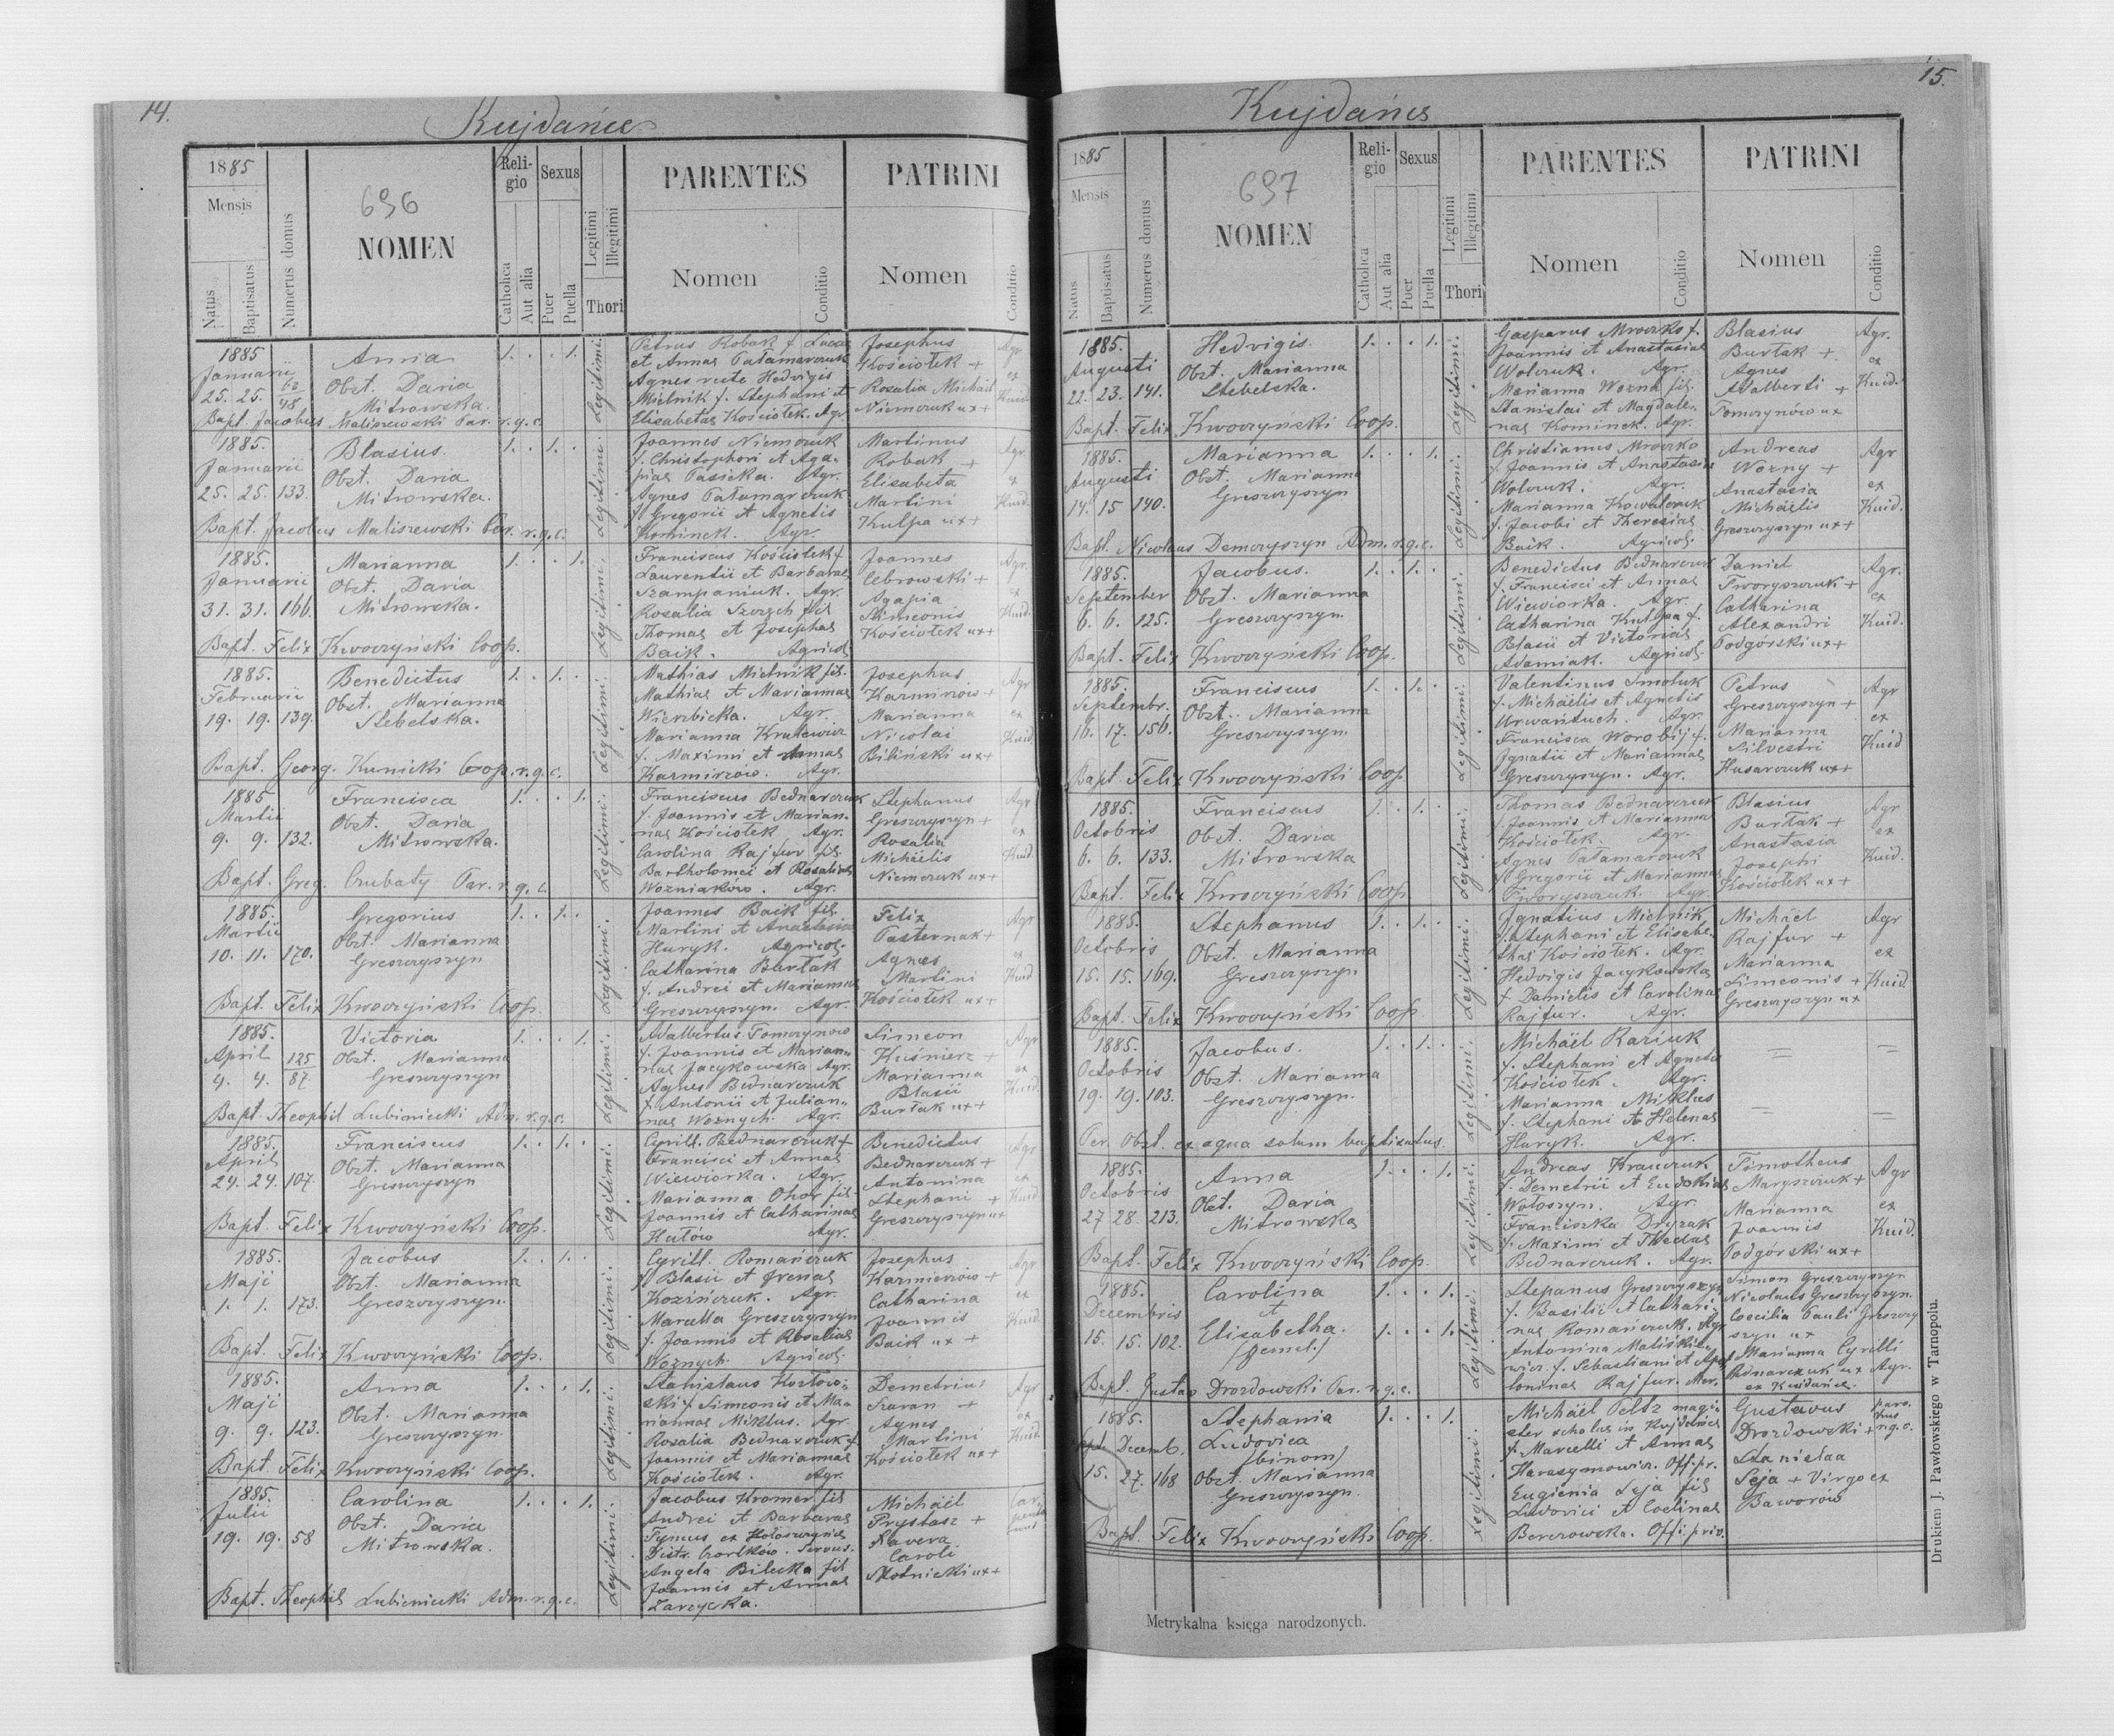 14.
Kujdańce
1885
Mensis
Natus
Baptisatus
Numerus domus
696
NOMEN
Religio
Catholica
Aut alia
Sexus
Puer
Puella
Legitimi
Illegitimi
Thori
PARENTES
Nomen
Conditio
PATRINI
Nomen
Conditio
1885
Januarii
25. 25. 62/48
Anna
Obst. Daria
Mitrowska.
1. . . 1.
Legitimi.
Petrus Robak f. Lucae
et Annae Tatamarczuk
Agnes recte Hedvigis
Mielnik f. Stephani et
Elisabetae Kościołek. Agr.
Josephus
Kościołek +
Rosalia Michael
Niemczuk ux +
Agr
ex
Kuid.
Bapt. Jacobus Maliszewski Par. r.g.c.
1885.
Januarii
25. 25. 133.
Blasius.
Obst. Daria
Mitrowska.
1. . 1. .
Legitimi.
Joannes Niemczuk
f. Christophori et Aga-
piae Pasicka. Agr.
Agnes Tatamarczuk
f. Gregorii et Agnetis
Kominek. Agr.
Martinus
Robak +
Elisabeta
Martini
Kulpa ux +
Agr.
ex
Kuid.
Bapt. Jacobus Maliszewski Par. r.g.c.
1885.
Januarii
31. 31. 166.
Marianna
Obst. Daria
Mitrowska.
1. . . 1.
Legitimi.
Franciscus Kościołek f.
Laurentii et Barbarae
Szampaniuk. Agr.
Rosalia Szerszeń fil
Thomae et Josephae
Baik. Agricol
Joannes
Cebrowski +
Agapia
Simeonis
Kościołek ux +
Agr.
ex
Kuid.
Bapt. Felix Kwoczyński Coop.
1885.
Februarii
19. 19. 139.
Benedictus
Obst. Marianna
Slebelska.
1. . 1. .
Legitimi.
Mathias Mielnik fil.
Mathiae et Mariannae
Wierzbicka. Agr.
Marianna Krulewicz
f. Maximi et Annae
Kazmirzów. Agr.
Josephus
Kazmirzów +
Marianna
Nicolai
Biliński ux +
Agr
ex
Kuid
Bapt. Georg. Kunicki Coop. r.g.c.
1885
Martii
9. 9. 132.
Francisca
Obst. Daria
Mitrowska.
1. . . 1.
Legitimi.
Franciscus Bednarczuk
f. Joannis et Marian-
nae Kościołek Agr.
Carolina Rajfur fil.
Bartholomei et Rosaliae
Wozniaków. Agr.
Stephanus
Greszczyszyn +
Rosalia
Michaelis
Niemczuk ux +
Agr
ex
Kuid.
Bapt. Greg. Czubaty Par. r.g.c.
1885.
Martii
10. 11. 170.
Gregorius
Obst. Marianna
Greszczyszyn
1. . 1. .
Legitimi.
Joannes Baik fil.
Martini et Anastasiae
Huryk. Agricol.
Catharina Burtak
f. Andrei et Mariannae
Greszczyszyn. Agr.
Felix
Pasternak +
Agnes
Martini
Kościołek ux +
Agr
ex
Kuid
Bapt. Felix Kwoczyński Coop.
1885.
April
4. 4. 125/87
Victoria
Obst. Marianna
Greszczyszyn
1. . . 1.
Legitimi.
Adalbertus Tomczynow
f. Joannis et Marian-
nae Jacykowska Agr.
Agnes Bednarczuk
f. Antonii et Julian-
nae Woznych. Agr.
Simeon
Kuśnierz +
Marianna
Blasii
Burtak ux +
Agr
ex
Kuid.
Bapt. Theophil Lubieniecki Adm. r.g.c.
1885.
April
24. 24. 107.
Franciscus
Obst. Marianna
Greszczyszyn
1. . 1. .
Legitimi.
Cyrill. Bednarczuk f.
Francisci et Annae
Wiewiorka. Agr.
Marianna Ohor fil.
Joannis et Catharinae
Hutow Agr.
Benedictus
Bednarczuk +
Antonina
Stephani +
Greszczyszyn ux
Agr
ex
Kuid
Bapt. Felix Kwoczyński Coop.
1885.
Maji
1. 1. 173.
Jacobus
Obst. Marianna
Greszczyszyn.
1. . 1. .
Legitimi.
Cyrill. Romańczuk
f. Blasii et Irenae
Kozińczuk. Agr.
Marcella Greszczyszyn
f. Joannis et Rosaliae
Woznych. Agricol.
Josephus
Kazmierzow +
Catharina
Joannis
Baik ux +
Agr
ex
Kuid.
Bapt. Felix Kwoczyński Coop.
1885.
Maji
9. 9. 123.
Anna
Obst. Marianna
Greszczyszyn.
1. . . 1.
Legitimi.
Stanislaus Kozłow-
ski f. Simeonis et Ma-
riannae Miklus. Agr.
Rosalia Bednarczuk f.
Joannis et Mariannae
Kościołek. Agr.
Demetrius
Szaran +
Agnes
Martini
Kościołek ux +
Agr
ex
Kuid.
Bapt. Felix Kwoczyński Coop.
1885.
Julii
19. 19. 58
Carolina
Obst. Daria
Mitrowska.
1. . . 1.
Legitimi.
Jacobus Kromer fil
Andrei et Barbarae
Tymus ex Hołoszyńce
Distr. Czortków. Servus.
Angela Bilecka fil
Joannis et Annae
Zarzycka.
Michael
Prystasz +
Xavera
Caroli
Młotnicki ux +
Bapt. Theophil Lubieniecki Adm. r.g.c.
15.
Kujdańce
1885
Mensis
Natus
Baptisatus
Numerus domus
697
NOMEN
Religio
Catholica
Aut alia
Sexus
Puer
Puella
Legitimi
Illegitimi
Thori
PARENTES
Nomen
Conditio
PATRINI
Nomen
Conditio
1885.
Augusti
22. 23. 141.
Hedvigis.
Obst. Marianna
Stebelska.
1. . . 1.
Legitimi.
Gasparus Mroczko f.
Joannis et Anastasiae
Wolczuk. Agr.
Marianna Wozna fil.
Stanislai et Magdale-
nae Kominek. Agr.
Blasius
Burtak +
Agnes
Adalberti +
Tomczynów ux
Agr.
ex
Kuid.
Bapt. Felix Kwoczyński Coop.
1885.
Augusti
14. 15 140.
Marianna
Obst. Marianna
Greszczyszyn
1. . . 1.
Legitimi.
Christianus Mroczko
f. Joannis et Anastasiae
Wolczuk. Agr.
Marianna Kowalczuk
f. Jacobi et Theresiae
Baik. Agricol.
Andreas
Wozny +
Anastasia
Michaelis
Greszczyszyn ux +
Agr
ex
Kuid.
Bapt. Nicolaus Demczyszyn Adm. r.g.c.
1885.
September
6. 6. 125.
Jacobus.
Obst. Marianna
Greszczyszyn.
1. . 1. .
Legitimi.
Benedictus Bednarczuk
f. Francisci et Annae
Wiewiorka. Agr.
Catharina Kulpa f.
Blasii et Victoriae
Adamiak. Agricol
Daniel
Tworyszczuk +
Catharina
Alexandri
Podgórski ux +
Agr.
ex
Kuid.
Bapt. Felix Kwoczyński Coop.
1885.
Septembr.
16. 17. 156.
Franciscus
Obst. Marianna
Greszczyszyn.
1. . 1. .
Legitimi.
Valentinus Smoluk
f. Michaëlis et Agnetis
Urwantuch. Agr.
Francisca Worobij f.
Ignatii et Mariannae
Greszczyszyn. Agr.
Petrus
Greszczyszyn +
Marianna
Silvestri
Husarczuk ux +
Agr
ex
Kuid
Bapt. Felix Kwoczyński Coop.
1885.
Octobris
6. 6. 133.
Franciscus
Obst. Daria
Mitrowska
1. . 1. .
Legitimi.
Thomas Bednarczuk
f. Joannis et Marianna
Kościołek. Agr.
Agnes Tatamarczuk
f. Gregorii et Mariannae
Tworyszczuk. Agr.
Blasius
Burtak +
Anastasia
Josephi
Kościołek ux +
Agr
ex
Kuid.
Bapt. Felix Kwoczyński Coop
1885.
Octobris
15. 15. 169.
Stephanus
Obst. Marianna
Greszczyszyn
1. . 1. .
Legitimi.
Ignatius Mielnik
f. Stephani et Elisabe-
thae Kościołek. Agr.
Hedvigis Jacykowska
f. Danielis et Carolinae
Rajfur. Agr.
Michael
Rajfur +
Marianna
Simeonis +
Greszczyszyn ux
Agr
ex
Kuid
Bapt. Felix Kwoczyński Coop
1885.
Octobris
19. 19. 103.
Jacobus.
Obst. Marianna
Greszczyszyn.
1. . 1. .
Legitimi.
Michaël Raziuk
f. Stephani et Agnetis
Kościołek. Agr.
Marianna Miklus
f. Stephani et Helenae
Huryk. Agr.
Per Obst. ex aqua solum baptisatus.
1885.
Octobris
27 28. 213.
Anna
Obst. Daria
Mitrowska
1. . . 1.
Legitimi.
Andreas Krawczuk
f. Demetrii et Eudokiae
Wołoszyn. Agr.
Franciszka Dryzak
f. Maximi et Theclae
Bednarczuk. Agr.
Timotheus
Maryszczuk +
Marianna
Joannis
Podgórski ux +
Agr
ex
Kuid.
Bapt. Felix Kwoczyński Coop.
1885.
Decembris
15. 15. 102.
Carolina
et
Elisabetha.
(gemel.)
1. . . 1.
1. . . 1.
Legitimi.
Stepanus Greszczyszyn
f. Basilii et Cathari-
nae Romańczuk. Agr
Antonina Maliskie-
wicz f. Sebastiani et Apol
loninae Rajfur. Mer.
Simon Greszczyszyn
Nicolaus Greszczyszyn.
Coecilia Pauli Greszczy
szyn ux
Marianna Cyrilli
Bednarczuk ux Agr.
ex Kuidańce.
Bapt. Gustav Drozdowski Par. r.g.c.
1885.
Decemb.
15. 27. 168
Stephania
Ludovica
(binom)
Obst. Marianna
Greszczyszyn.
1. . . 1.
Legitimi.
Michaël Peltz magi-
ster scholae in Kujdańce
f. Marcelli et Annae
Harasymowicz. Off. pr.
Eugienia Seja fil
Ludovici et Coelinae
Berezowska. Off. priv.
Gustavus
Drozdowski +
Stanislaa
Seja + Virgo ex
Baworów
paro.
chus
r.g.c.
Bapt. Felix Kwoczyński Coop.
Metrykalna księga narodzonych.
Drukiem J. Pawłowskiego w Tarnopolu.